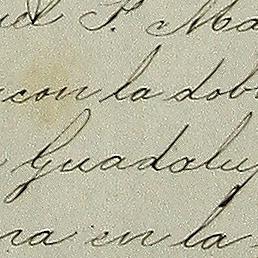 P. Ma
con la dob
Guadalup
na en la